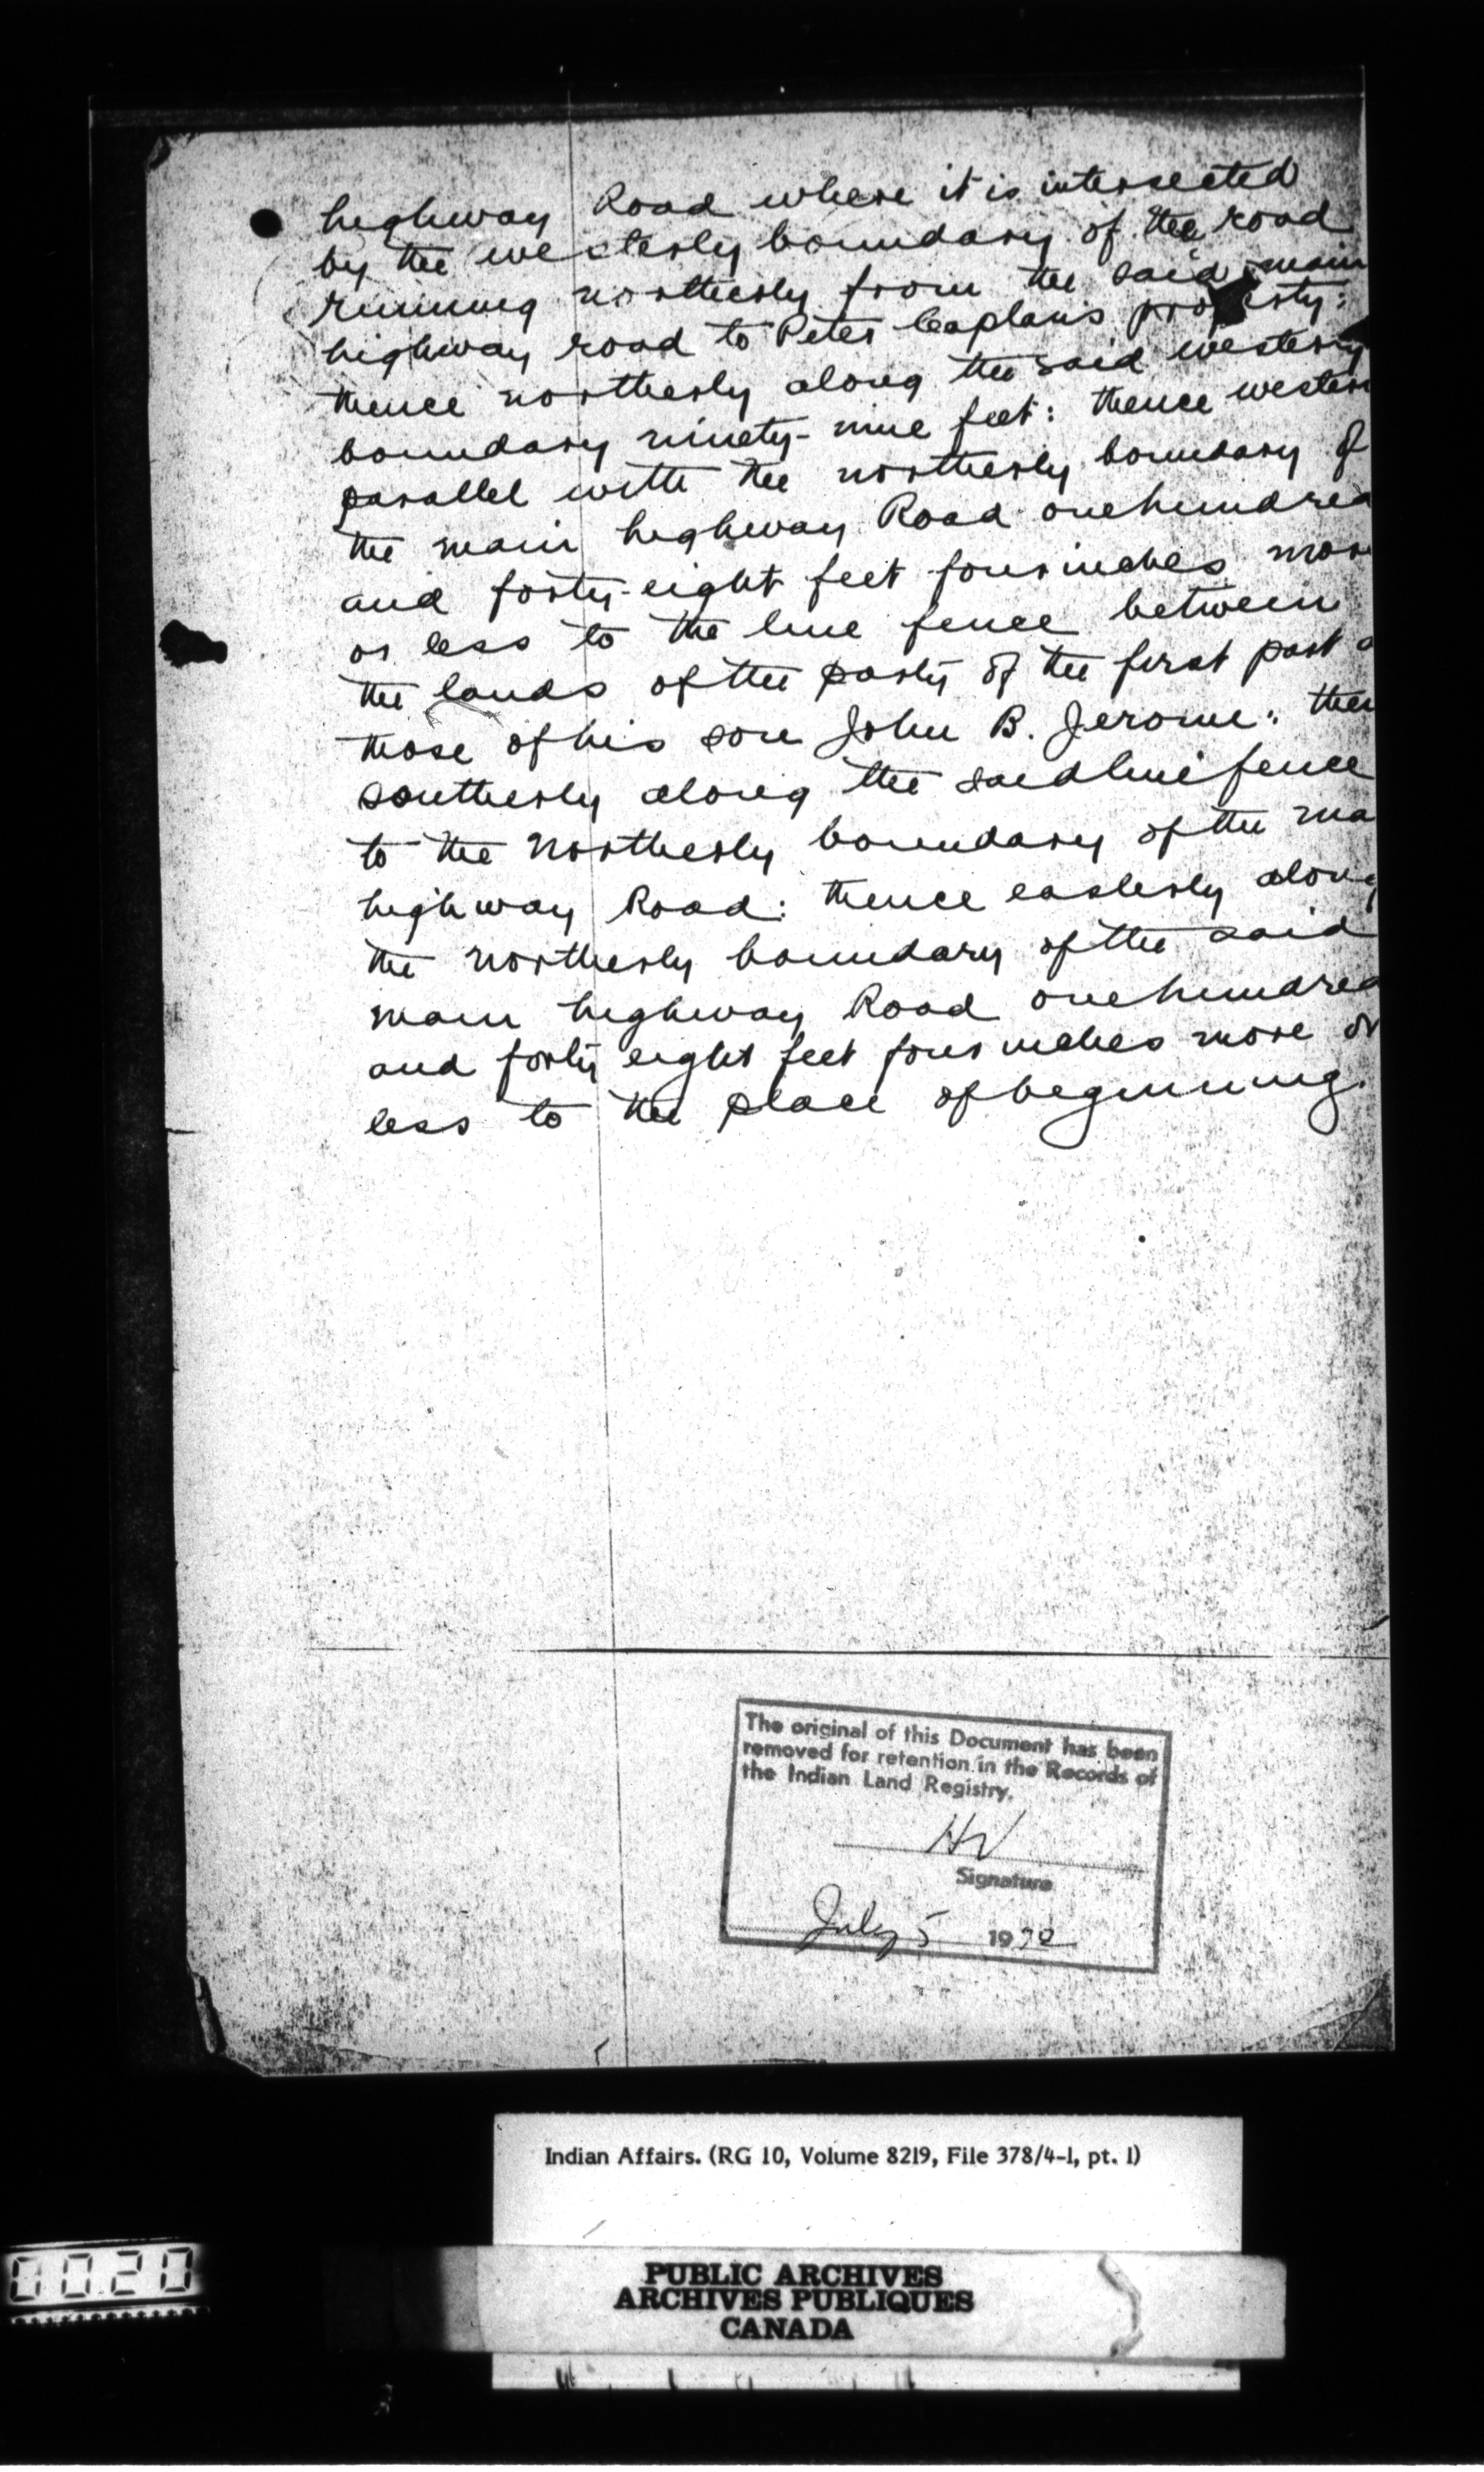 highway Road where it is intersected
by the westerly boundary of the road
running northerly from the said main
highway road to Peter Caplan's property:
thence northerly along the said westerly
boundary ninety-nine feet: thence western
parallel with the northerly boundary of
the main highway Road one hundred
and forty-eight feet four inches more
or less to the line fence between
the lands of the party of the first part a
those of his son John B. Jerome: then
southerly along the said line fence
to the northerly boundary of the ma
highway Road: thence easterly along
the northerly boundary of the said
main highway Road one hundred
and forty eight feet four inches more or
less to the place of beginning.
The original of this Document has been
removed for retention in the Records of
the Indian Land Registry.
HV
Signature
July 5 1972
Indian Affairs. (RG 10, Volume 8219, File 378/4-1, pt. 1)
0020
PUBLIC ARCHIVES
ARCHIVES PUBLIQUES
CANADA